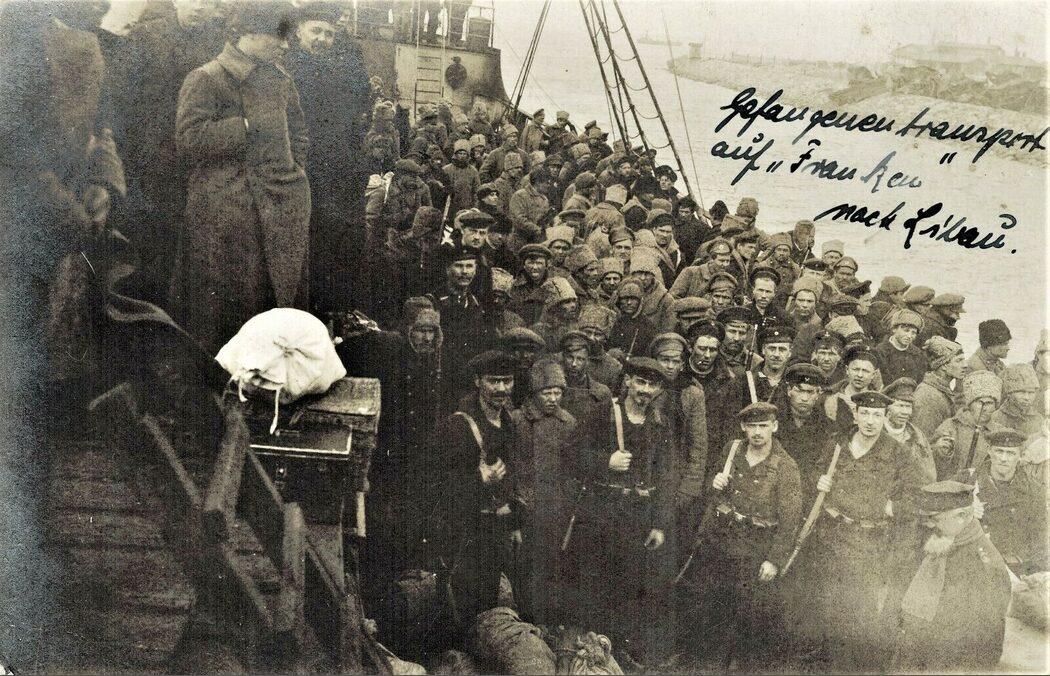 Gefangenentransport
auf „Franken"
nach Libau.